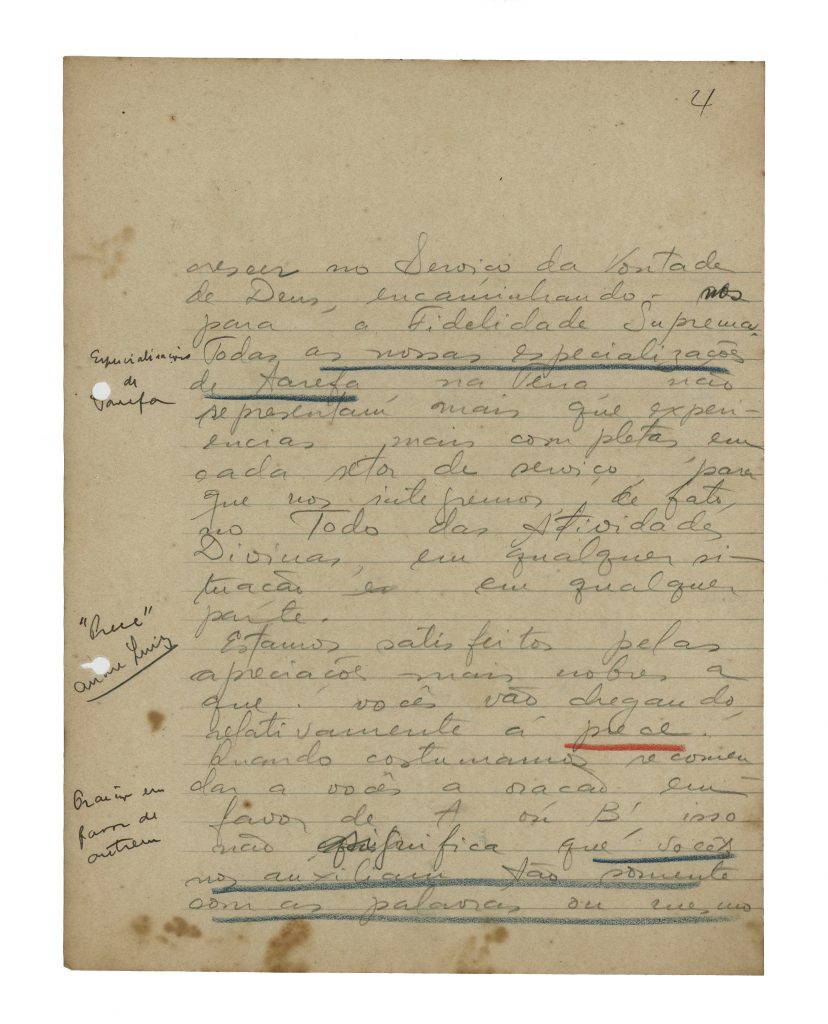 4
crescer no Serviço da Vontade
de Deus, encaminhando-nos
para a Fidelidade Suprema.
Todas as nossas especializações
de tarefa na Terra não
representam mais que experi-
encias mais completas em
cada setor de serviço, para
que nos integremos, de fato,
no Todo das Atividades
Divinas, em qualquer si-
tuação e em qualquer
parte.
Estamos satisfeitos pelas
apreciações mais nobres a
que vocês vão chegando,
relativamente á prece.
Quando costumamos recomen
dar a vocês a oração em
favor de A ou B, isso
não significa que vocês
nos auxiliam tão somente
com as palavras ou mesmo
Especialização
de
Tarefa
"Prece"
André Luiz
Oração em
favor de
outrem